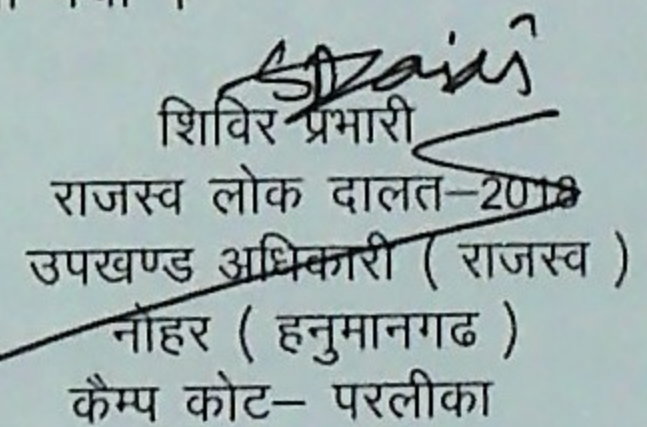 शिविर प्रभारी
राजस्व लोक दालत–2018
उपखण्ड अधिकारी ( राजस्व )
नोहर ( हनुमानगढ )
कैम्प कोट– परलीका